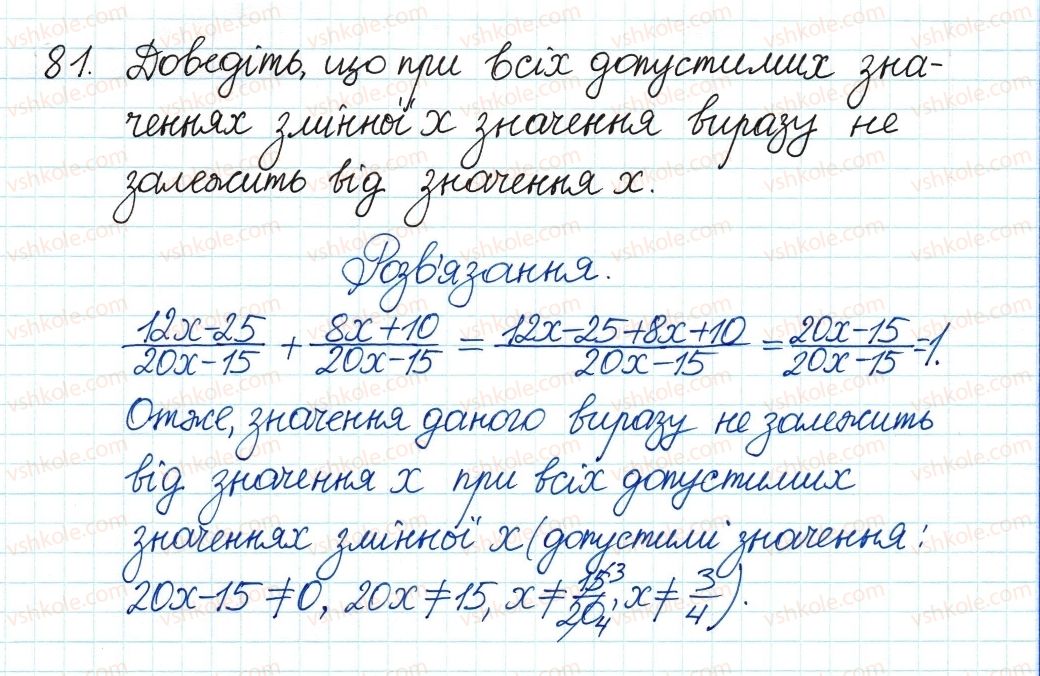 81. Доведіть, що при всіх допустимих зна-
ченнях змінної x значення виразу не
залежить від значення x.
Розв'язання.
12x-25/20x-15 + 8x+10/20x-15 = 12x-25+8x+10/20x-15 = 20x-15/20x-15 = 1.
Отже, значення даного виразу не залежить
від значення x при всіх допустимих
значеннях змінної x (допустимі значення:
20x-15≠0, 20x≠15, x≠15 3/20 4; x≠3/4).
vshkole.com